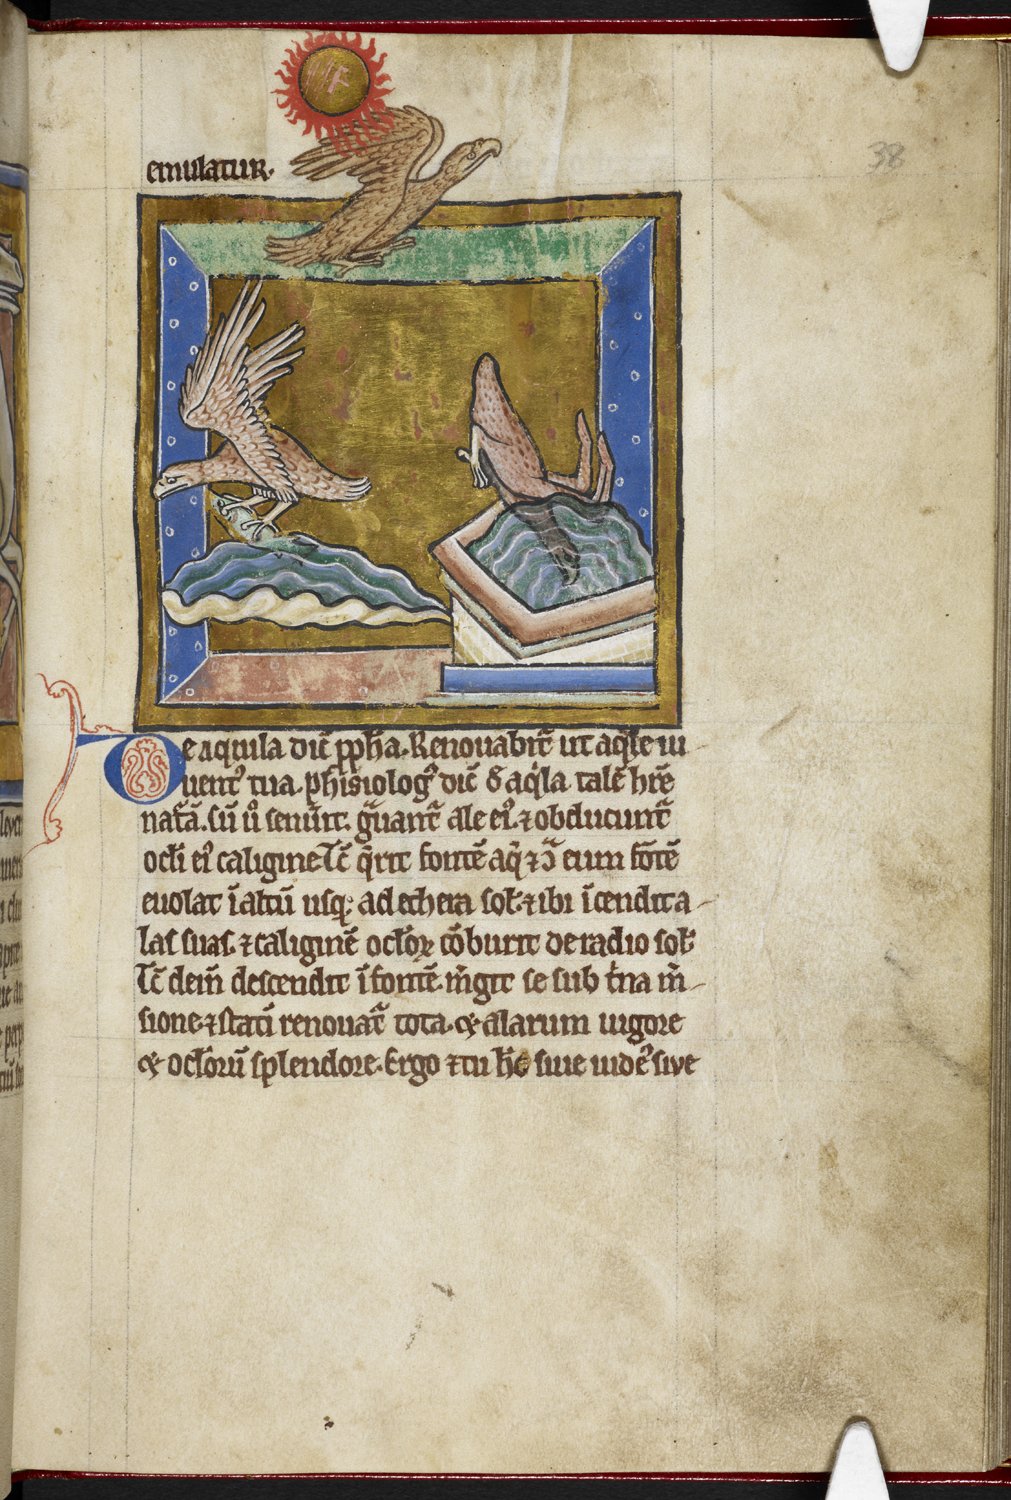 38
emulatur.
De aquila dic̄ ꝓph̄a. Renouabit̄ ut aqͥle iu
uent᷒ tua. phisiolog᷒ dic̄ de aqͥla talē hr̄e
nat̄ā. Cū u̾o senu̾it. gͣuant̄ ale ei᷒. ⁊ obducunt̄
oc̄li ei᷒ caligine. Tc̄ qͥ̄rit fontē aq̄ ⁊ ↄͣ eum fōtē
euolat ī altū usq; ad ethera sol̄. ⁊ ibi īcendit a
las suas. ⁊ caliginē ocl̄oꝝ cōburit de radio sol̄.
Tc̄ dem̄ descendit ī fontē. m̾git se sub t̾na m̾
sione. ⁊ statī renouat̄ tota. ex alarum uigore
ex ocl̄orū splendore. Ergo ⁊ tu siue iude᷒ sive